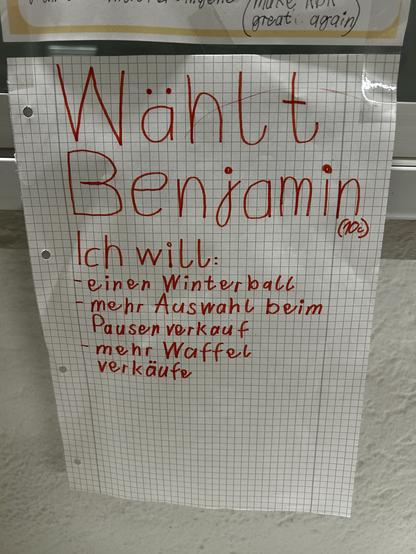 make KDR
(great again)
Wählt
Benjamin
(10c)
Ich will:
- einen Winterball
- mehr Auswahl beim
Pausenverkauf
- mehr Waffel
verkäufe